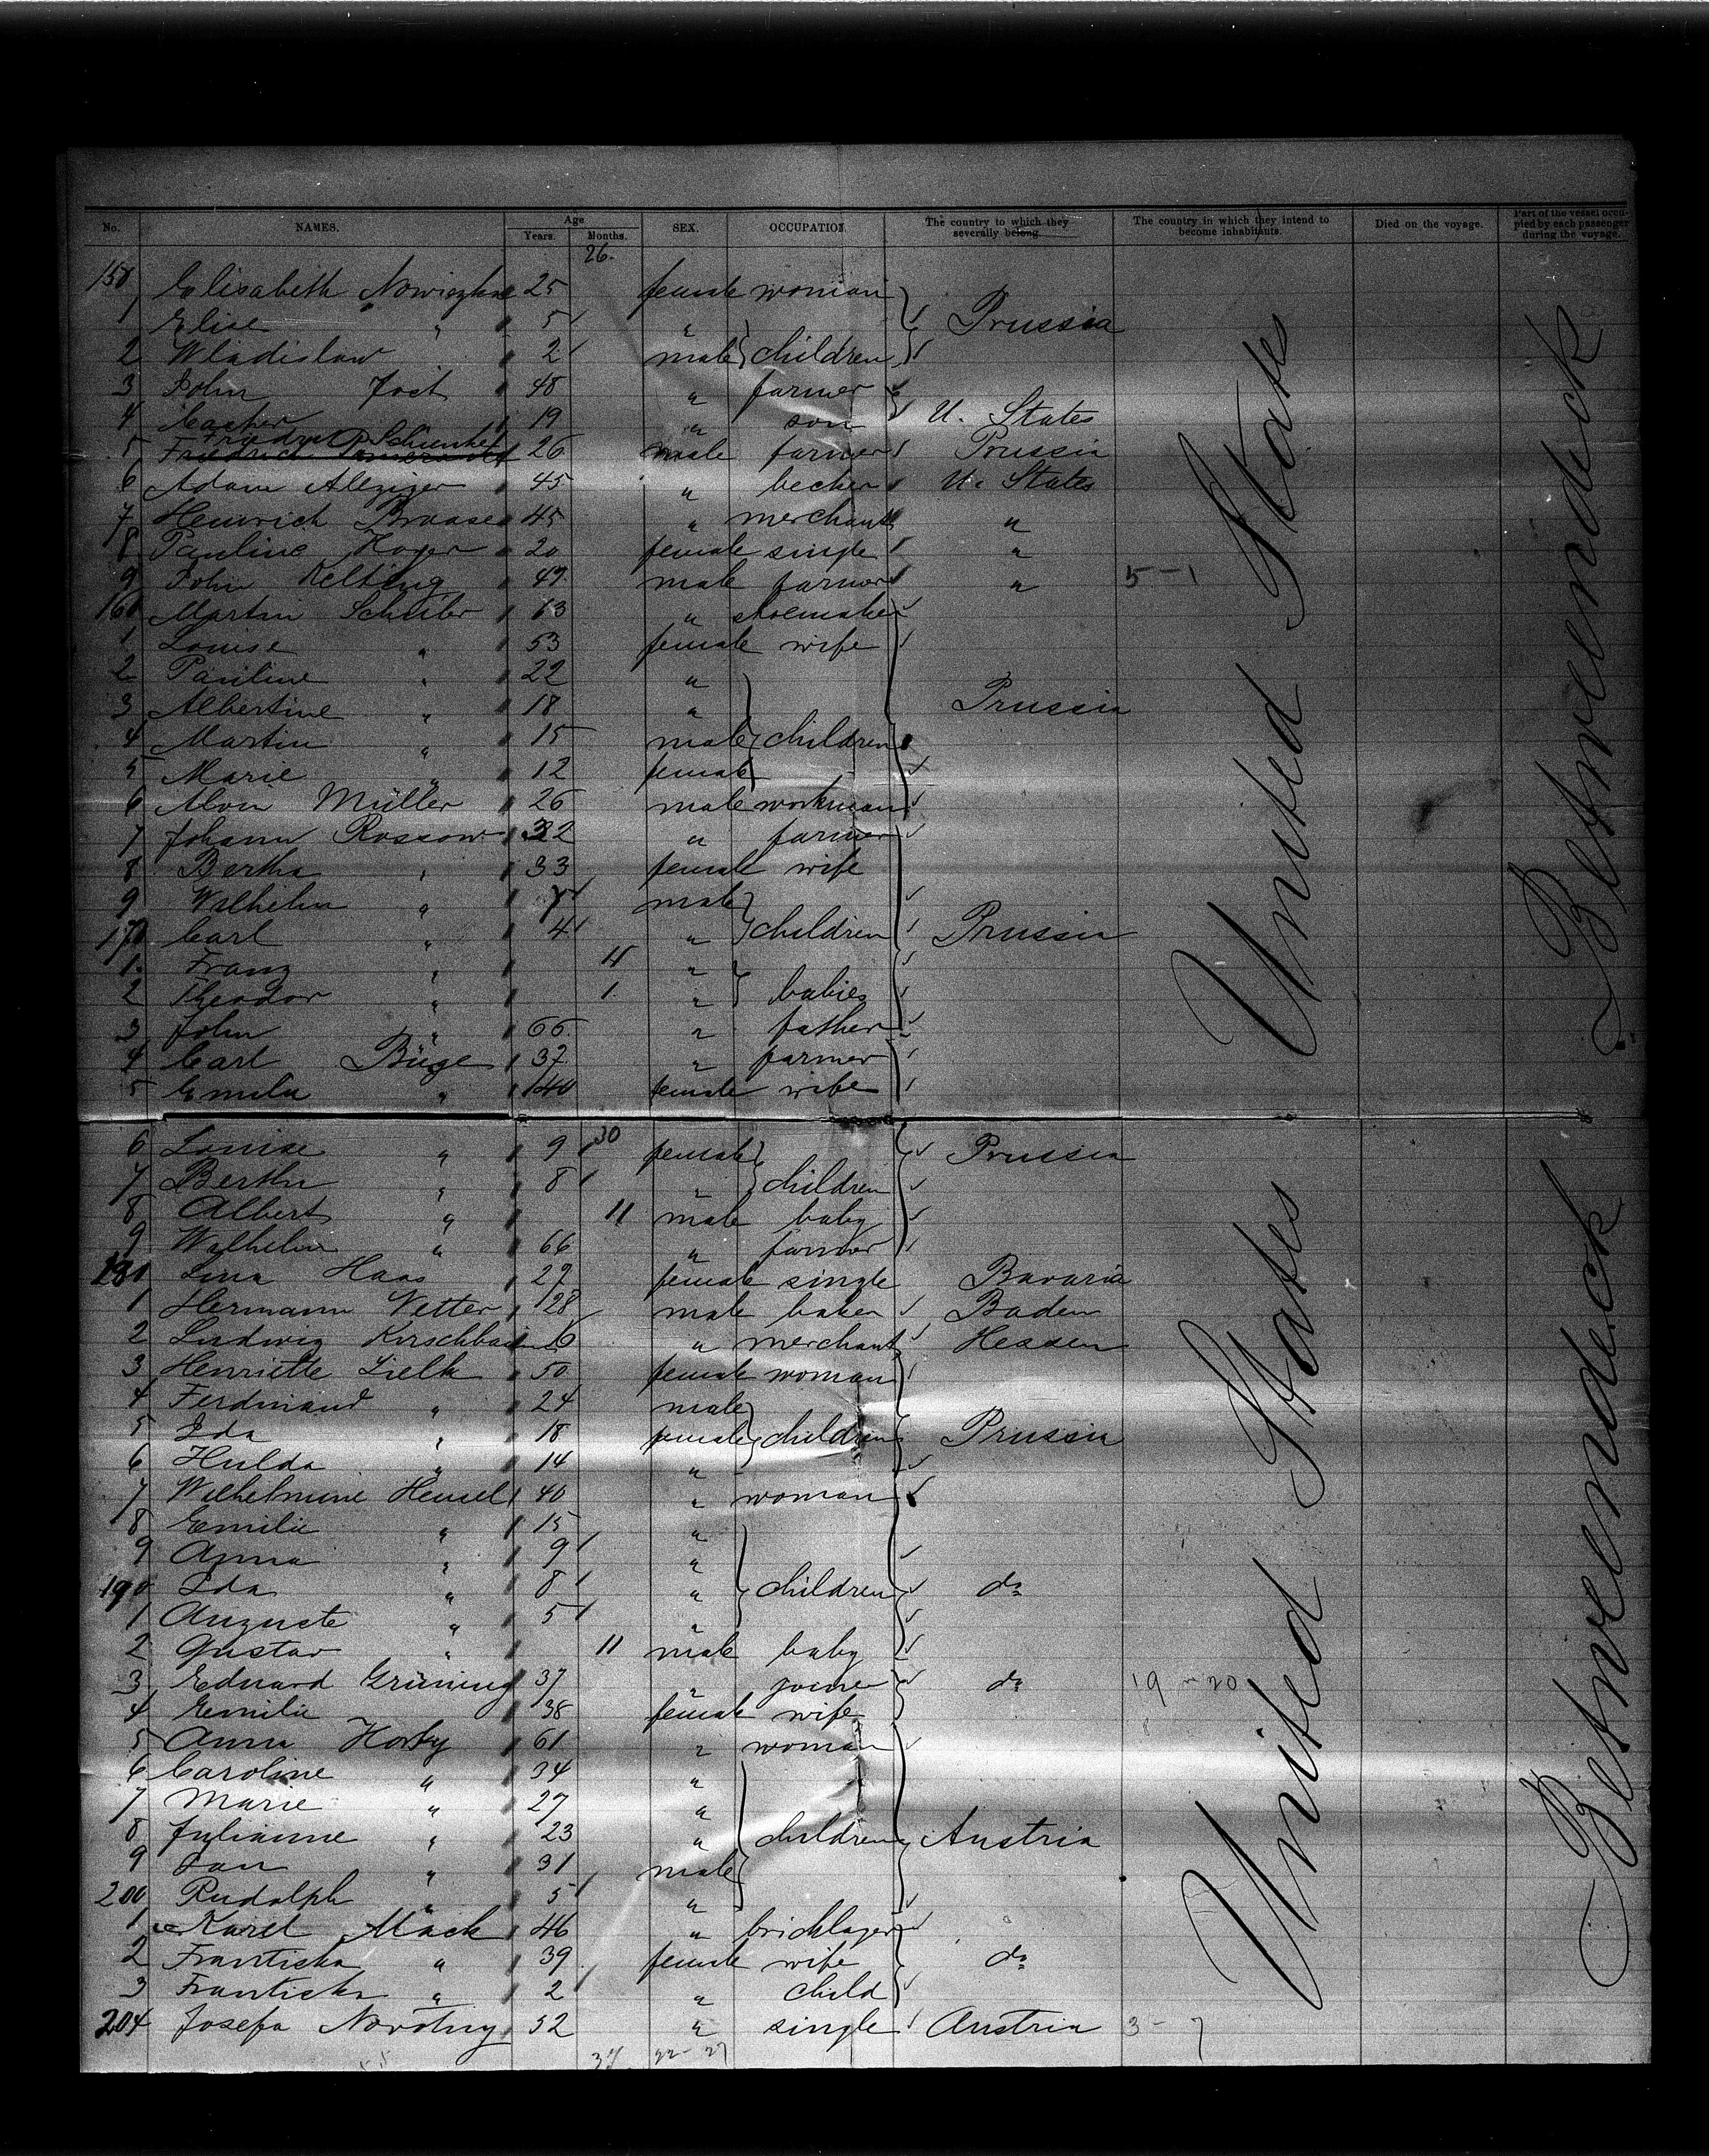 No. NAMES. Age Years. Months. SEX. OCCUPATION The country to which they severally belong. The country in which they intend to become inhabitants. Died on the voyage. Part of the vessel occupied by each passenger during the voyage.
26.
150 Elisabeth 25 female woman
1 Elise " 5 " Prussia
2 Wladislaw 2 male children
3 John Jost 48 " farmer
4 19 " son U. States
5 Friedrich 26 male farmer Prussia
6 Adam 45 " becker U. States
7 Heinrich Braase 45 " merchant "
8 Pauline Hoyer 20 female single "
9 John Kelting 47 male farmer " 5-1
160 Martin Schuler 63 " shoemaker
1 Louise " 53 female wife
2 Pauline " 22 "
3 Albertine " 18 " Prussia
4 Martin " 15 male children
5 Marie " 12 female
6 Alvin Müller 26 male workman
7 Johann Rossow 32 " farmer
8 Bertha " 33 female wife
9 Wilhelm " 7 male
170 Carl " 4 " children Prussia
1 Franz " 11 "
2 Theodor " 1 " babies
3 John " 66 " father
4 Carl Büge 37 " farmer
5 Emilu " 40 female wife
United States
Betweendeck
30
6 Louise " 9 female Prussia
7 Bertha " 8 " children
8 Albert " 11 male baby
9 Wilhelm " 66 " farmer
180 Lina Haas 27 female single Bavaria
1 Hermann Vetter 28 male baker Baden
2 Ludwig Kirschbaum 16 " merchant Hessen
3 Henriette Lielk 50 female woman
4 Ferdinand " 24 male
5 Ida " 18 female children Prussia
6 Hulda " 14 "
7 Wilhelmine Hensel 40 " woman
8 Emilie " 15 "
9 Anna " 9 "
190 Ida " 8 " children do
1 Auguste " 5 "
2 Gustav " 11 male baby
3 Eduard Grüning 37 " joiner do 19-20
4 Emilie 38 female wife
5 Anna Horky 61 " woman
6 Caroline " 34 "
7 Marie " 27 "
8 Julianne " 23 " children Austria
9 Jan " 31 male
200 Rudolph " 5 "
1 Karel Mack 46 " bricklayer
2 Frantiska " 39 female wife do
3 Frantiska " 2 " child
204 Josefa Novotny 52 " single Austria 3-7
United States
Betweendeck